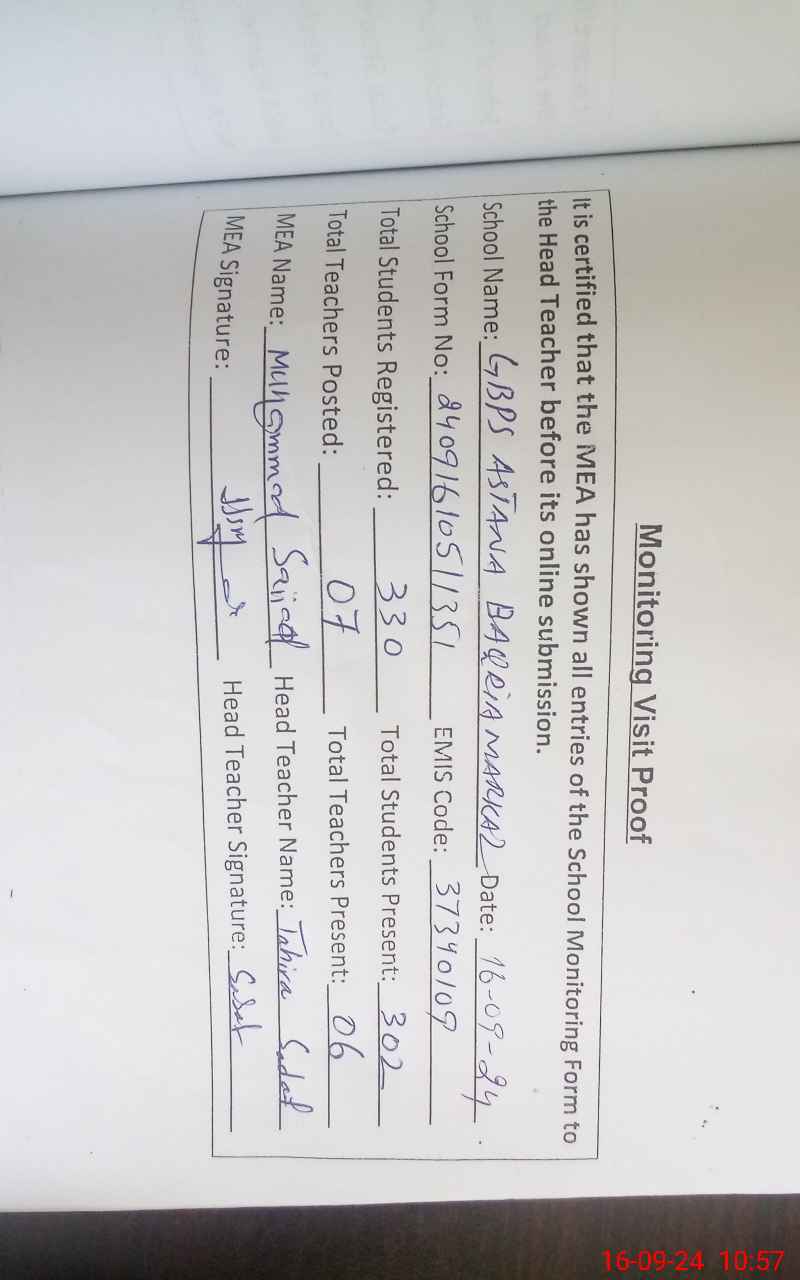 Monitoring Visit Proof
It is certified that the MEA has shown all entries of the School Monitoring Form to
the Head Teacher before its online submission.
School Name: GBPS ASTANA BAQRIA MARKAZ Date: 16-09-24
School Form No: 24091610511351 EMIS Code: 37340109
Total Students Registered: 330 Total Students Present: 302
Total Teachers Posted: 07 Total Teachers Present: 06
MEA Name: Muhammad Sajjad Head Teacher Name: Tahira Sadaf
MEA Signature: Head Teacher Signature: Sadaf
16-09-24 10:57